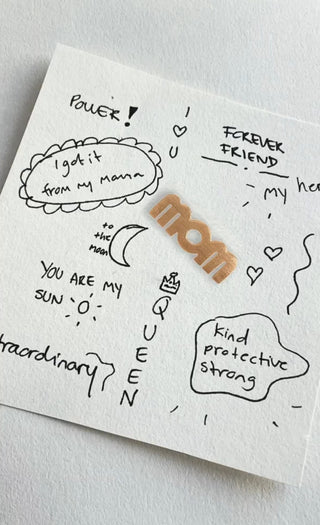 POWER!
I
♡
U
FOREVER
FRIEND
I got it
from my mama
my
to
the
moon
mom
YOU ARE MY
SUN
QUEEN
kind
protective
strong
traordinary